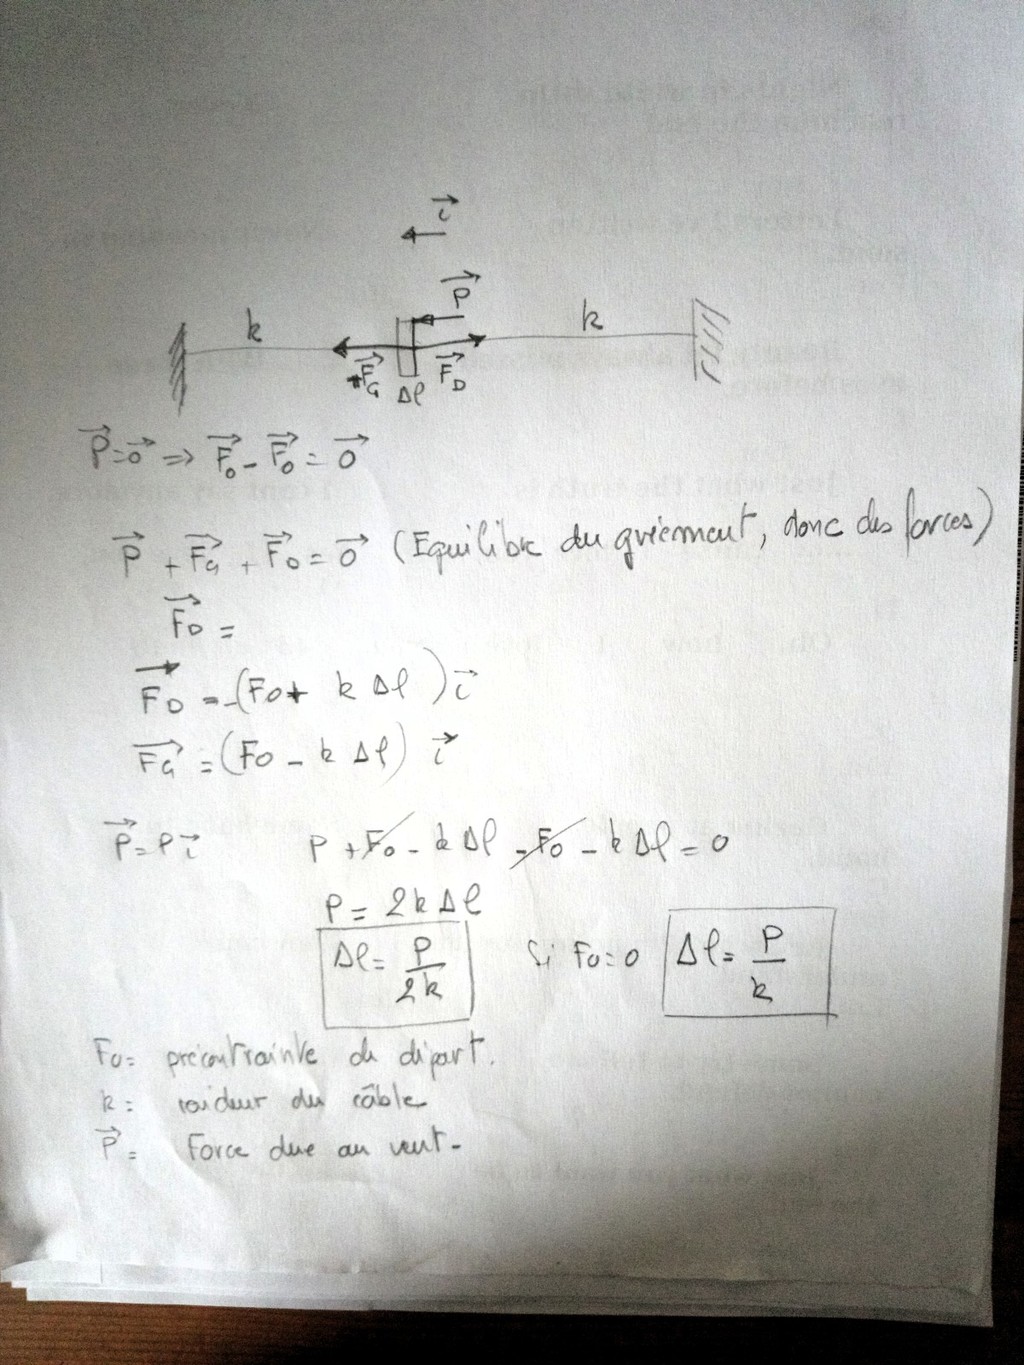 i⃗
P⃗
k k
F⃗G Δl F⃗D
P⃗=0⃗ ⇒ F⃗0 - F⃗0 = 0⃗
P⃗ + F⃗G + F⃗D = 0⃗ (Equilibre du gréement, donc des forces)
F⃗D =
F⃗D = -(F0 + k Δl) i⃗
F⃗G = (F0 - k Δl) i⃗
P⃗ = P i⃗ P + F0 - k Δl - F0 - k Δl = 0
P = 2k Δl
Δl = P/2k Si F0 = 0 Δl = P/k
F0 = précontrainte de départ.
k = raideur du câble
P⃗ = Force due au vent -